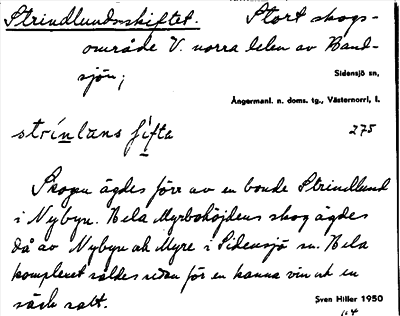 Strindlundsskiftet. Stort skogs-
område V. norra delen av Band-
sjön;
Sidensjö sn,
Ångermanl. n. doms. tg., Västernorrl. l.
275
Skogen ägdes förr av en bonde Strindlund
i Nybyn. Hela Myrbohöjdens skog ägdes
då av Nybyn och Myre i Sidensjö sn. Hela
komplexet såldes redan för en kanna vin och en
säck salt.
Sven Hiller 1950